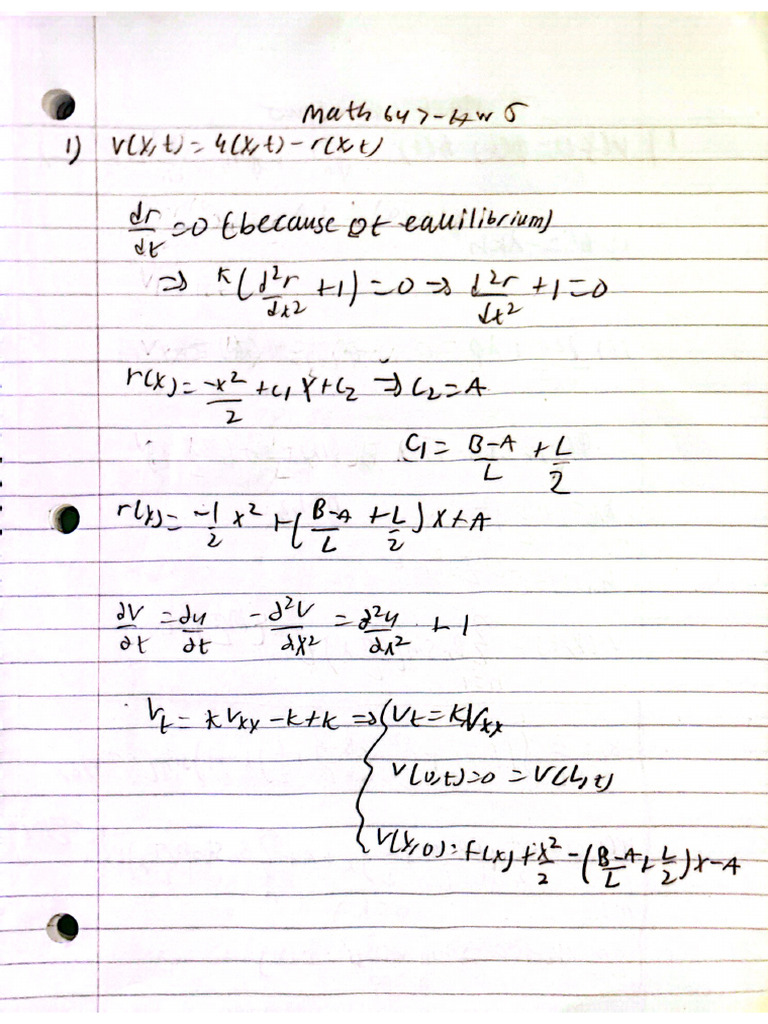 Math 647-HW 5
1) v(x,t) = u(x,t) - r(x,t)
dr/dt = 0 (because of equilibrium)
⇒ k(d²r/dx² + 1) = 0 ⇒ d²r/dx² + 1 = 0
r(x) = -x²/2 + c₁x + c₂ ⇒ c₂ = A
c₁ = B-A/L + L/2
r(x) = -1/2 x² + (B-A/L + L/2)x + A
∂v/∂t = ∂u/∂t - ∂²v/∂x² = ∂²u/∂x² + 1
Vt = kVxx - k + k ⇒ { Vt = kVxx
v(0,t) = 0 = v(L,t)
v(x,0) = f(x) + x²/2 - (B-A/L + L/2)x - A